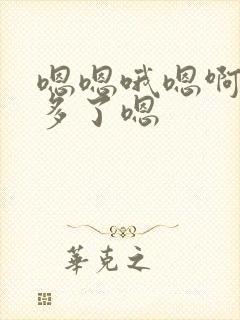 嗯嗯哦嗯啊
多了嗯
華克之